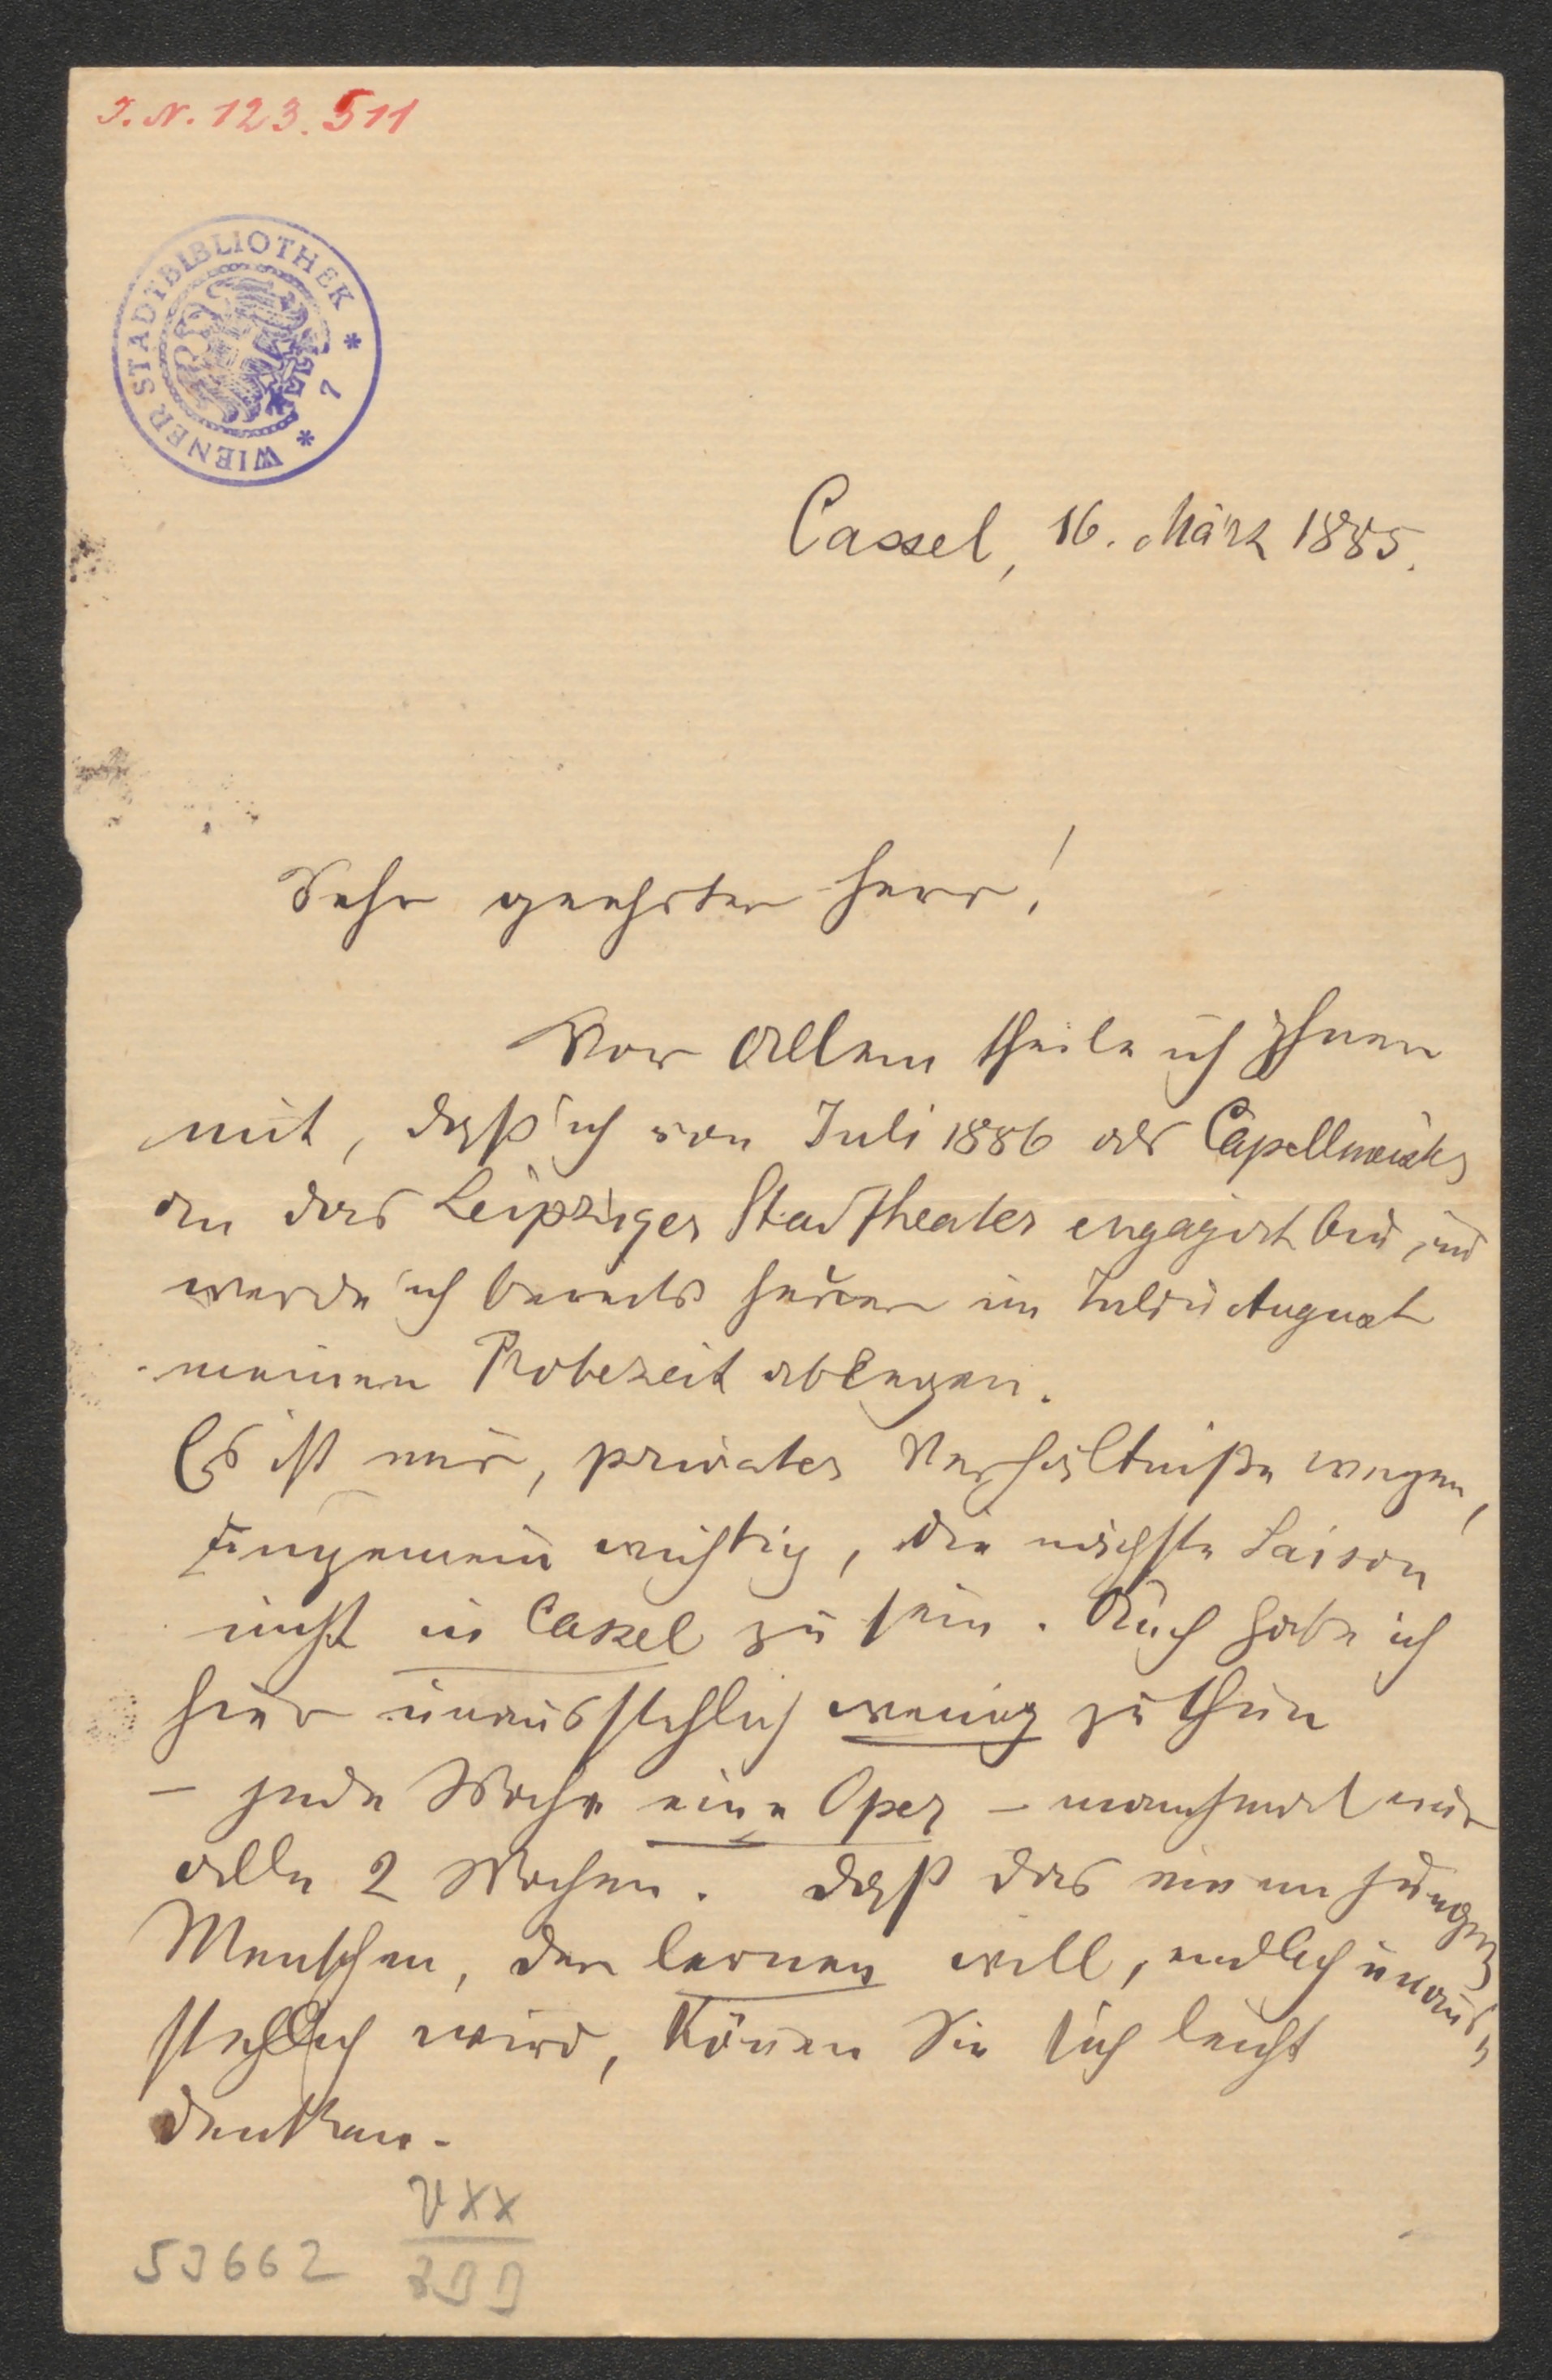 I. N. 123.511
WIENER STADTBIBLIOTHEK * 7 *
Cassel, 16. März 1885.
Sehr geehrter Herr!
Vor Allem theile ich Ihnen
mit, daß ich von Juli 1886 als Capellmeister
an das Leipziger Stadttheater engagirt bin, und
werde ich bereits heuer im Juli u August
meinen Probezeit ablegen.
Es ist mir, privater Verhältniße wegen,
ungemein wichtig, die nächste Saison
nicht in Cassel zu sein. Auch habe ich
hier unausstehlich wenig zu thun
– jede Woche eine Oper – manchmal nur
alle 2 Wochen. Daß das einem jungen
Menschen, der lernen will, endlich unaus-
stehlich wird, können Sie sich leicht
denken.
53662